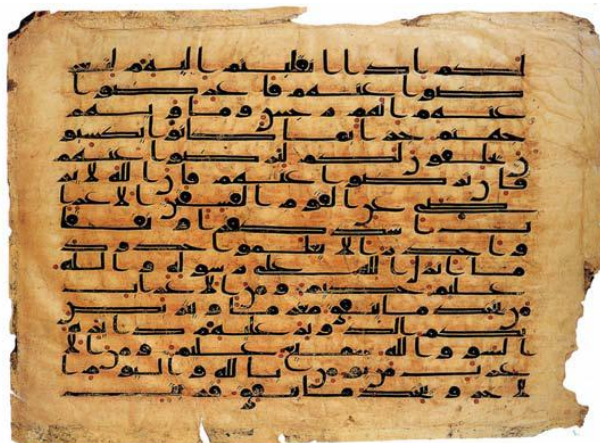 لكم اذا انقلبتم اليهم لتعر
ضوا عنهم فاعرضوا
عنهم انهم رجس وماويهم
جهنم جزا بما كانوا يكسبو
ن يحلفون لكم لترضوا عنهم
فان ترضوا عنهم فان الله لا ير
ضى عن القوم الفسقين الاعرا
ب اشد كفرا ونفقا
واجدر الا يعلموا حدود
ما انزل الله على رسوله والله
عليم حكيم ومن الاعراب
من يتخذ ما ينفق مغرما ويتر
بص بكم الدواير عليهم دايره
السو والله سميع عليم ومن الا
عراب من يومن بالله واليوم ا
لاخر ويتخذ ما ينفق قربت